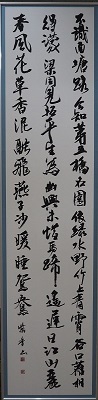 不識南塘路今知第五橋名園依綠水野竹上青霄谷口舊相
得濠梁同見招平生為幽興未惜馬蹄遙遲日江山麗
春風花草香泥融飛燕子沙暖睡鴛鴦